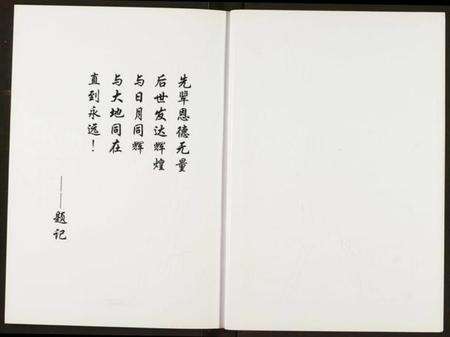 先辈恩德无量
后世发达辉煌
与日月同辉
与大地同在
直到永远！
——题记